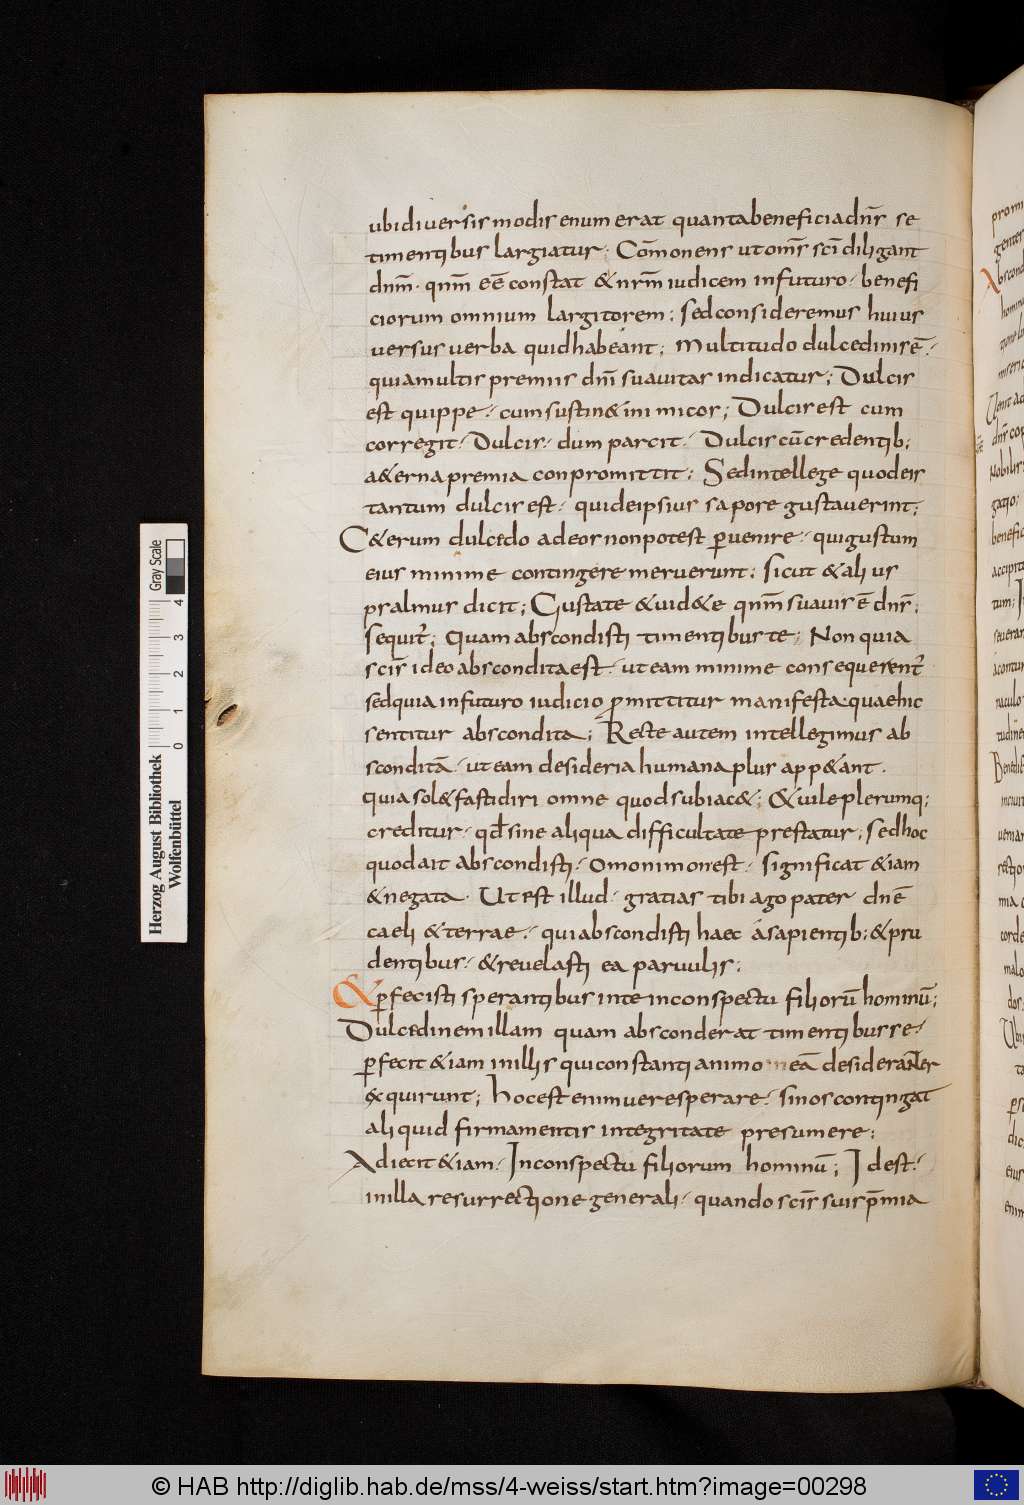 ubi diversis modis enumerat quanta beneficia dn̄s se
timentibus largiatur; Com̄onens ut om̄s sc̄i diligant
dn̄m. qn̄m eē constat & nr̄m iudicem in futuro. benefi
ciorum omnium largitorem; sed consideremus huius
versus verba quid habeant; Multitudo dulcedinis ē.
quia multis premiis dn̄i suavitas indicatur; Dulcis
est quippe. cum sustin& inimicos; Dulcis est cum
corregit. Dulcis. dum parcit. Dulcis cū credentib;
a&erna premia conpromittit; Sed intellege quod eis
tantum dulcis est. qui de ipsius sapore gustaverint;
C&erum dulcedo ad eos non potest p̄venire. qui gustum
eius minime contingere meruerunt; sicut & alius
psalmus dicit; Gustate & vid&e qn̄m suavis ē dn̄s;
sequit̄; Quam abscondisti timentibus te; Non quia
sc̄is ideo abscondita est. ut eam minime consequerent̄
sed quia in futuro iudicio p̄mittitur manifesta quae hic
sentitur abscondita; Recte autem intellegimus ab
sconditā. ut eam desideria humana plus app&ant.
quia sol& fastidiri omne quod subiac&; & vile plerumq;
creditur. qd̄ sine aliqua difficultate prestatur; sed hoc
quod ait abscondisti. omonimon est. significat & iam
& negata. Ut est illud. gratias tibi ago pater dn̄e
caeli & terrae. qui abscondisti haec a sapientib; & pru
dentibus. & revelasti ea parvulis;
& p̄fecisti sperantibus in te in conspectu filiorū hominū;
Dulcedinem illam quam absconderat timentibus se.
p̄fecit & iam in illis qui constanti animo eā desideranter
exquirunt; hoc est enim vere sperare. si nos contingat
aliquid firmamentis integritate presumere;
Adiecit & iam. In conspectu filiorum hominū; Id est.
in illa resurrectione generali. quando sc̄is suis p̄mia
Herzog August Bibliothek
Wolfenbüttel
Gray Scale
0 1 2 3 4
© HAB http://diglib.hab.de/mss/4-weiss/start.htm?image=00298